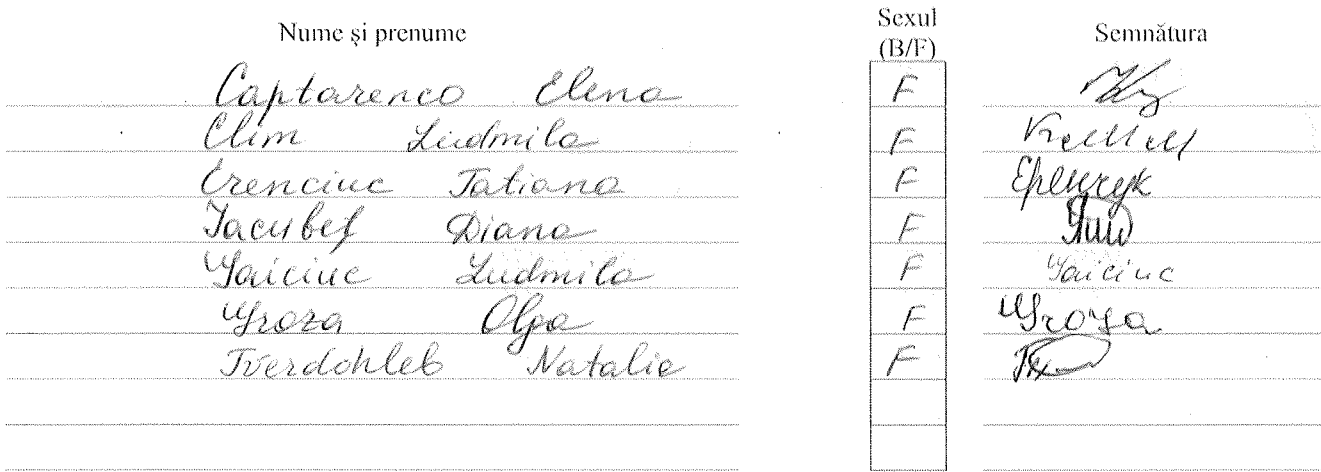 Nume și prenume Sexul (B/F) Semnătura
Captarenco Elena F
Clim Ludmila F
Erenciuc Tatiana F Еренчук
Iacubeț Diana F
Gaiciuc Ludmila F Gaiciuc
Groza Olga F Groza
Tverdohleb Natalie F